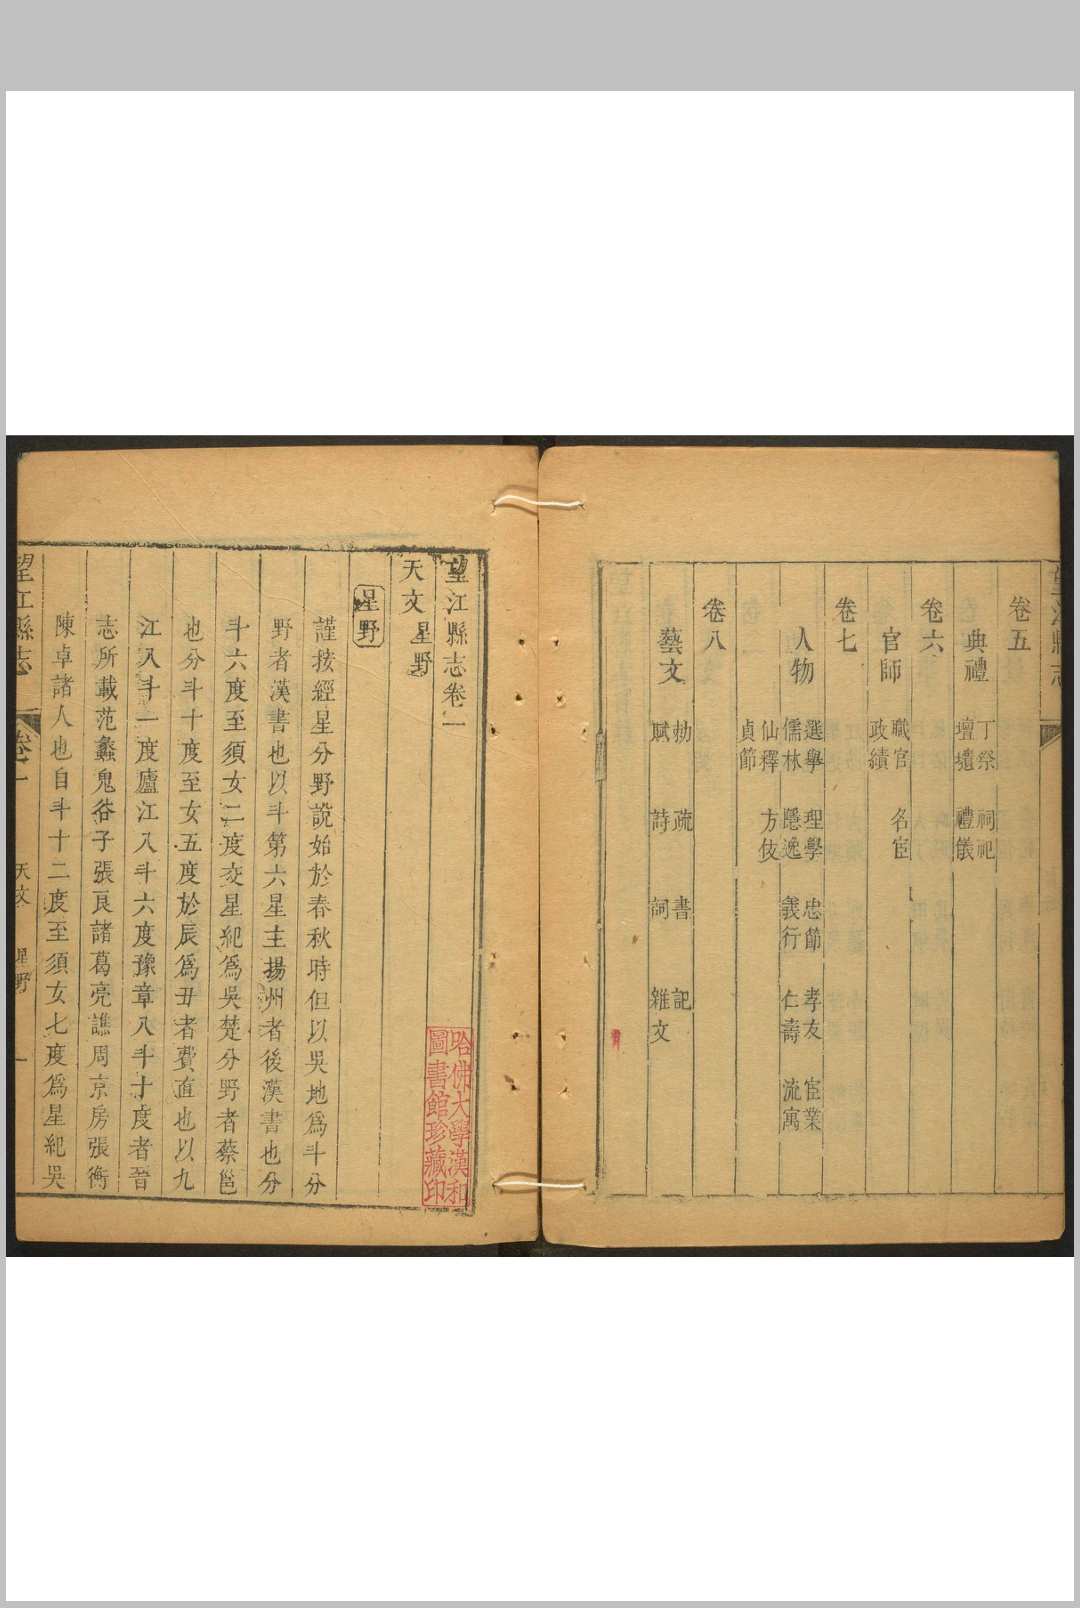 卷五
典禮
丁祭 祠祀
壇壝 禮儀
卷六
官師
職官 名宦
政績
卷七
人物
選舉 理學 忠節 孝友 宦業
儒林 隱逸 義行 仁壽 流寓
仙釋 方伎
貞節
卷八
藝文
勅 疏 書 記
賦 詩 詞 雜文
望江縣志卷一
天文 星野
星野
謹按經星分野說始於春秋時但以吳地爲斗分
野者漢書也以斗第六星主揚州者後漢書也分
斗六度至須女二度交星紀爲吳楚分野者蔡邕
也分斗十度至女五度於辰爲丑者費直也以九
江入斗一度廬江入斗六度豫章入斗十度者晉
志所載范蠡鬼谷子張良諸葛亮譙周京房張衡
陳卓諸人也自斗十二度至須女七度爲星紀吳
望江縣志 卷一 天文 星野 一
哈佛大學漢和
圖書館珍藏印